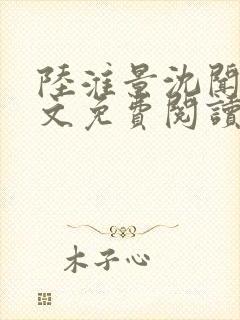 陸淮景沈聞
文免費閱讀
木子心